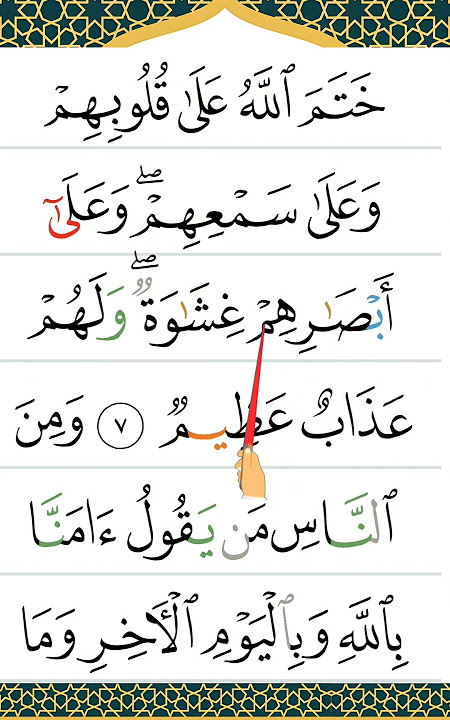 خَتَمَ ٱللَّهُ عَلَىٰ قُلُوبِهِمۡ
وَعَلَىٰ سَمۡعِهِمۡۖ وَعَلَىٰٓ
أَبۡصَٰرِهِمۡ غِشَٰوَةٞۖ وَلَهُمۡ
عَذَابٌ عَظِيمٞ ٧ وَمِنَ
ٱلنَّاسِ مَن يَقُولُ ءَامَنَّا
بِٱللَّهِ وَبِٱلۡيَوۡمِ ٱلۡأٓخِرِ وَمَا